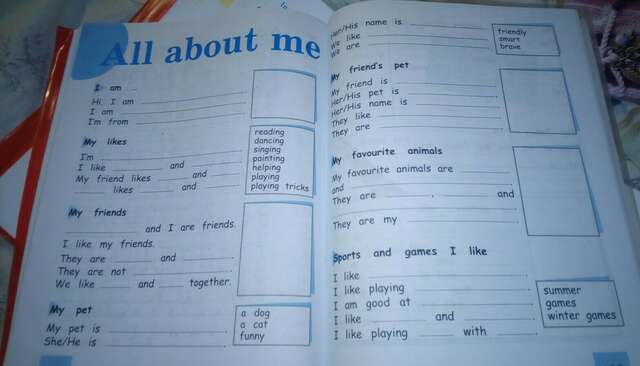 All about me
I am
Hi, I am
I am
I'm from
My likes
I'm
I like and
My friend likes and
likes and
reading
dancing
singing
painting
helping
playing
playing tricks
My friends
and I are friends.
I like my friends.
They are and
They are not
We like and together.
My pet
My pet is
She/He is
a dog
a cat
funny
Her/His name is
We like
We are
friendly
smart
brave
My friend's pet
My friend is
Her/His pet is
Her/His name is
They like
They are
My favourite animals
My favourite animals are
and
They are , and
They are my
Sports and games I like
I like
I like playing
I am good at
I like and
I like playing with
summer
games
winter games